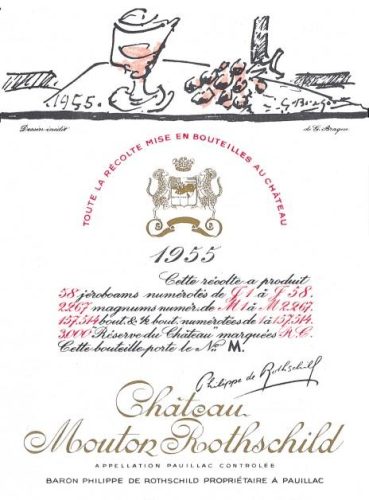 1955.
G. Braque
Dessin inédit
de G. Braque
TOUTE LA RÉCOLTE MISE EN BOUTEILLES AU CHÂTEAU
1955
Cette récolte a produit
58 jéroboams numérotés de J 1 à J 58.
2.267 magnums numér. de M 1 à M 2.267.
157.514 bout. & ½ bout. numérotées de 1 à 157.514.
3.000 "Réserve du Château" marquées R.C.
Cette bouteille porte le No M.
Philippe de Rothschild
Château
Mouton Rothschild
APPELLATION PAUILLAC CONTROLÉE
BARON PHILIPPE DE ROTHSCHILD PROPRIÉTAIRE À PAUILLAC